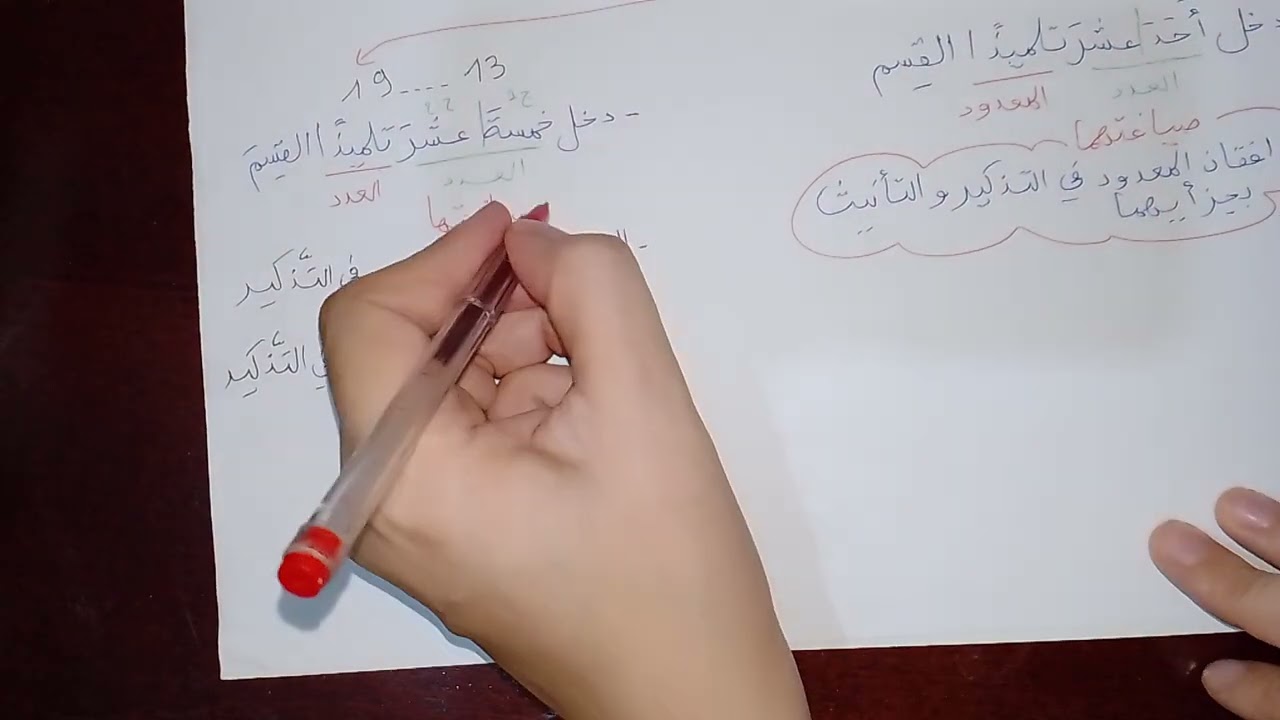 دخل أَحَدَ عشَرَ تلميذًا القِسم
العدد
المعدود
صياغتهما
افقان المعدود في التذكير و التأنيث
بجزأيهما
13 .... 19
- دخل خمسةَ عشَرَ تلميذًا القِسمَ
ج1 ج2
العدد
العدد
في التَّذكير
التَّذكير